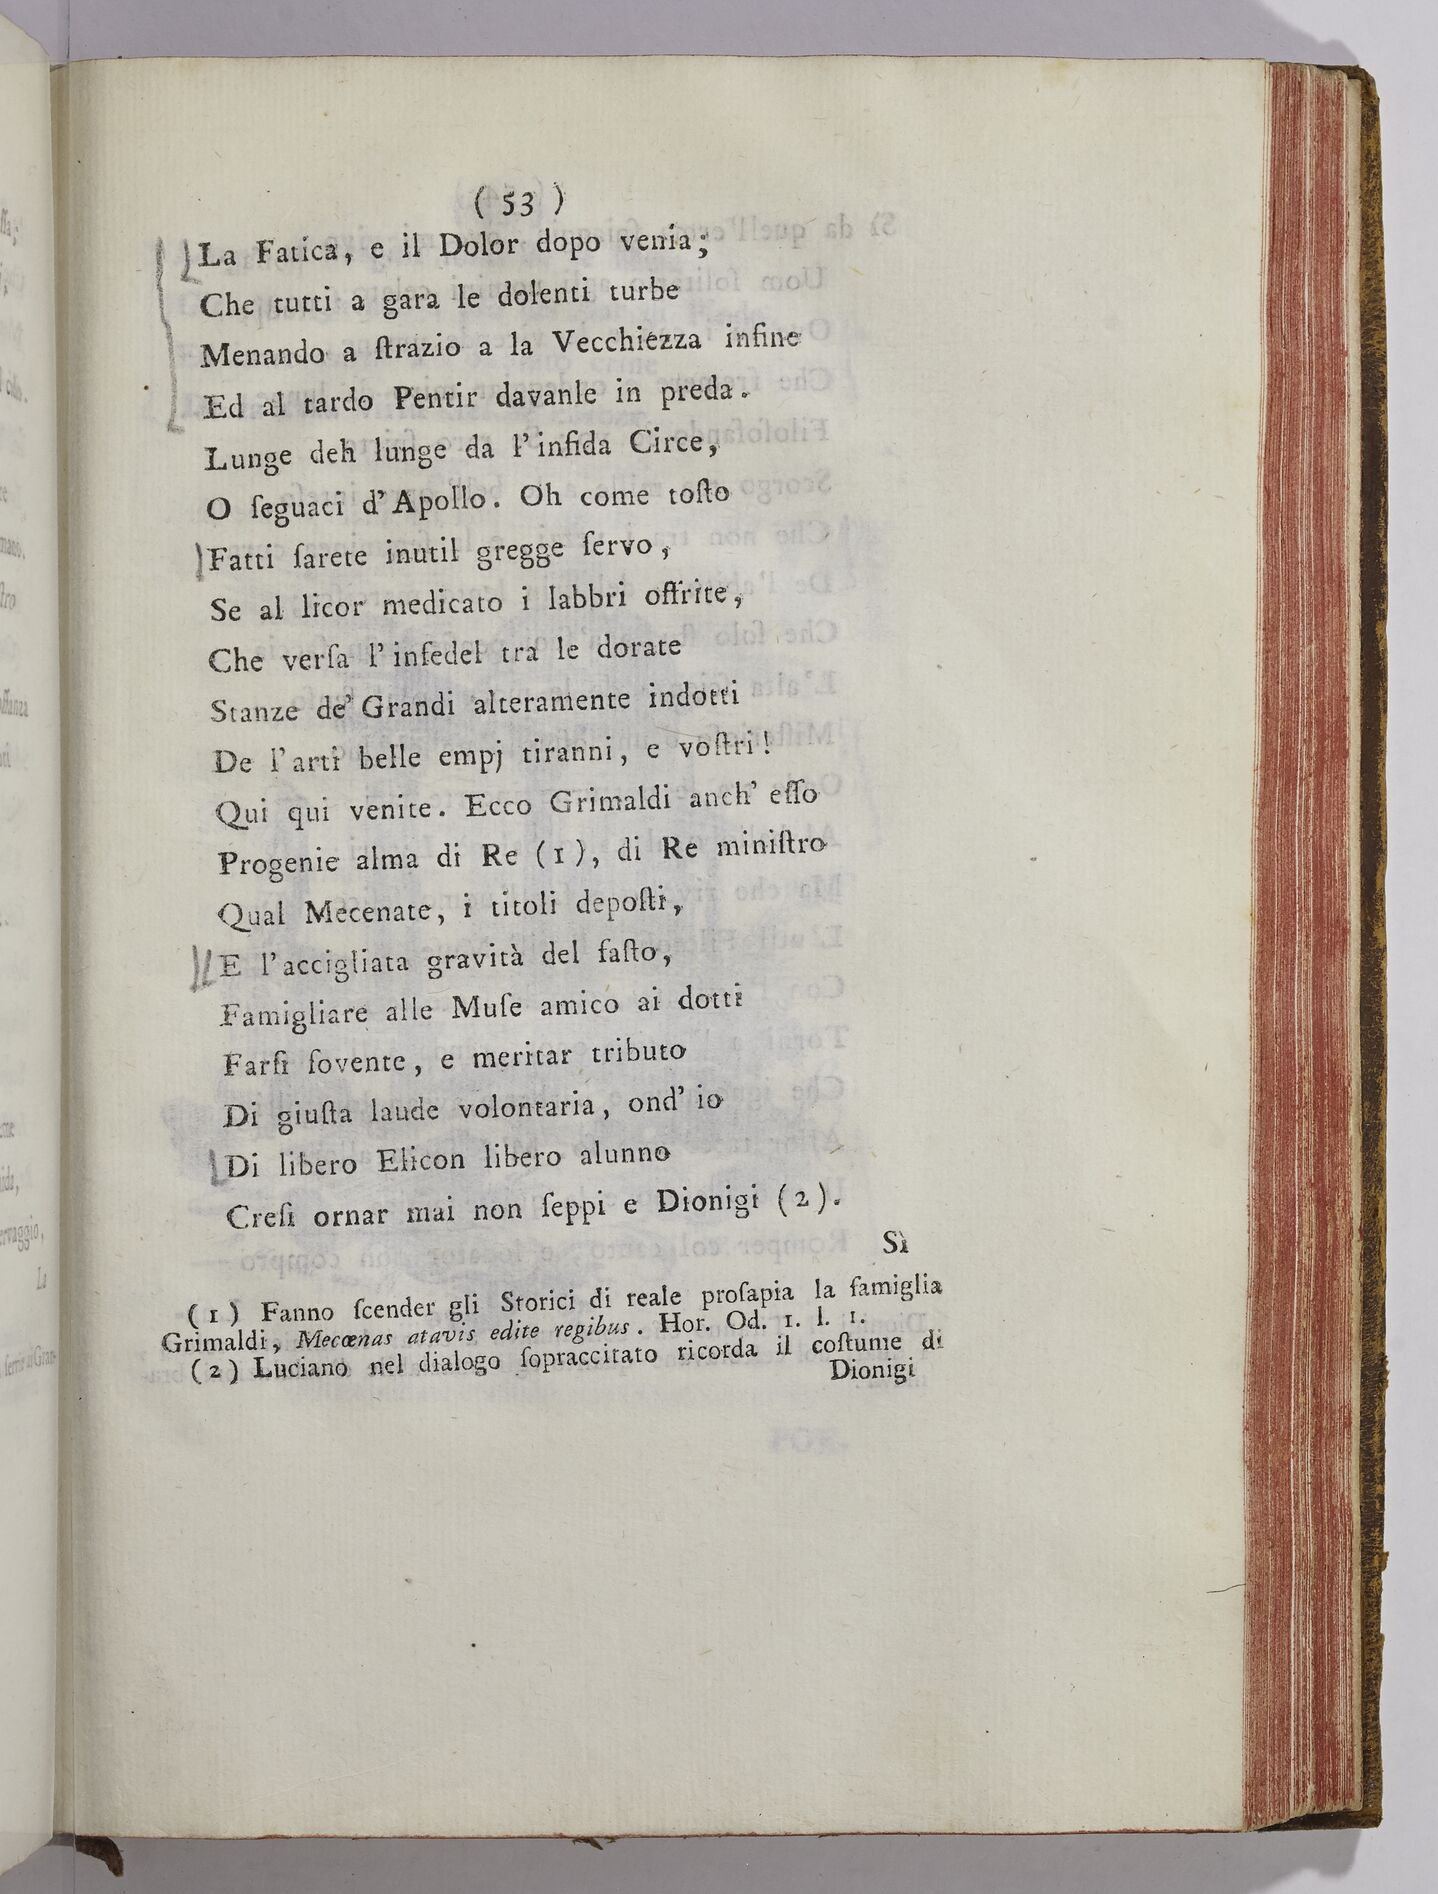 ( 53 )
La Fatica, e il Dolor dopo venía;
Che tutti a gara le dolenti turbe
Menando a ſtrazio a la Vecchiezza inſine
Ed al tardo Pentir davanle in preda.
Lunge deh lunge da l'infida Circe,
O ſeguaci d'Apollo. Oh come toſto
Fatti ſarete inutil gregge ſervo,
Se al licor medicato i labbri offrite,
Che verſa l'infedel tra le dorate
Stanze de' Grandi alteramente indotti
De l'arti belle empj tiranni, e voſtri!
Qui qui venite. Ecco Grimaldi anch' eſſo
Progenie alma di Re (1), di Re miniſtro
Qual Mecenate, i titoli depoſti,
E l'accigliata gravità del faſto,
Famigliare alle Muſe amico ai dotti
Farſi ſovente, e meritar tributo
Di giuſta laude volontaria, ond' io
Di libero Elicon libero alunno
Creſi ornar mai non ſeppi e Dionigi (2).
Sì
(1) Fanno ſcender gli Storici di reale proſapia la famiglia
Grimaldi, Mecœnas atavis edite regibus. Hor. Od. 1. l. 1.
(2) Luciano nel dialogo ſopraccitato ricorda il coſtume di
Dionigi